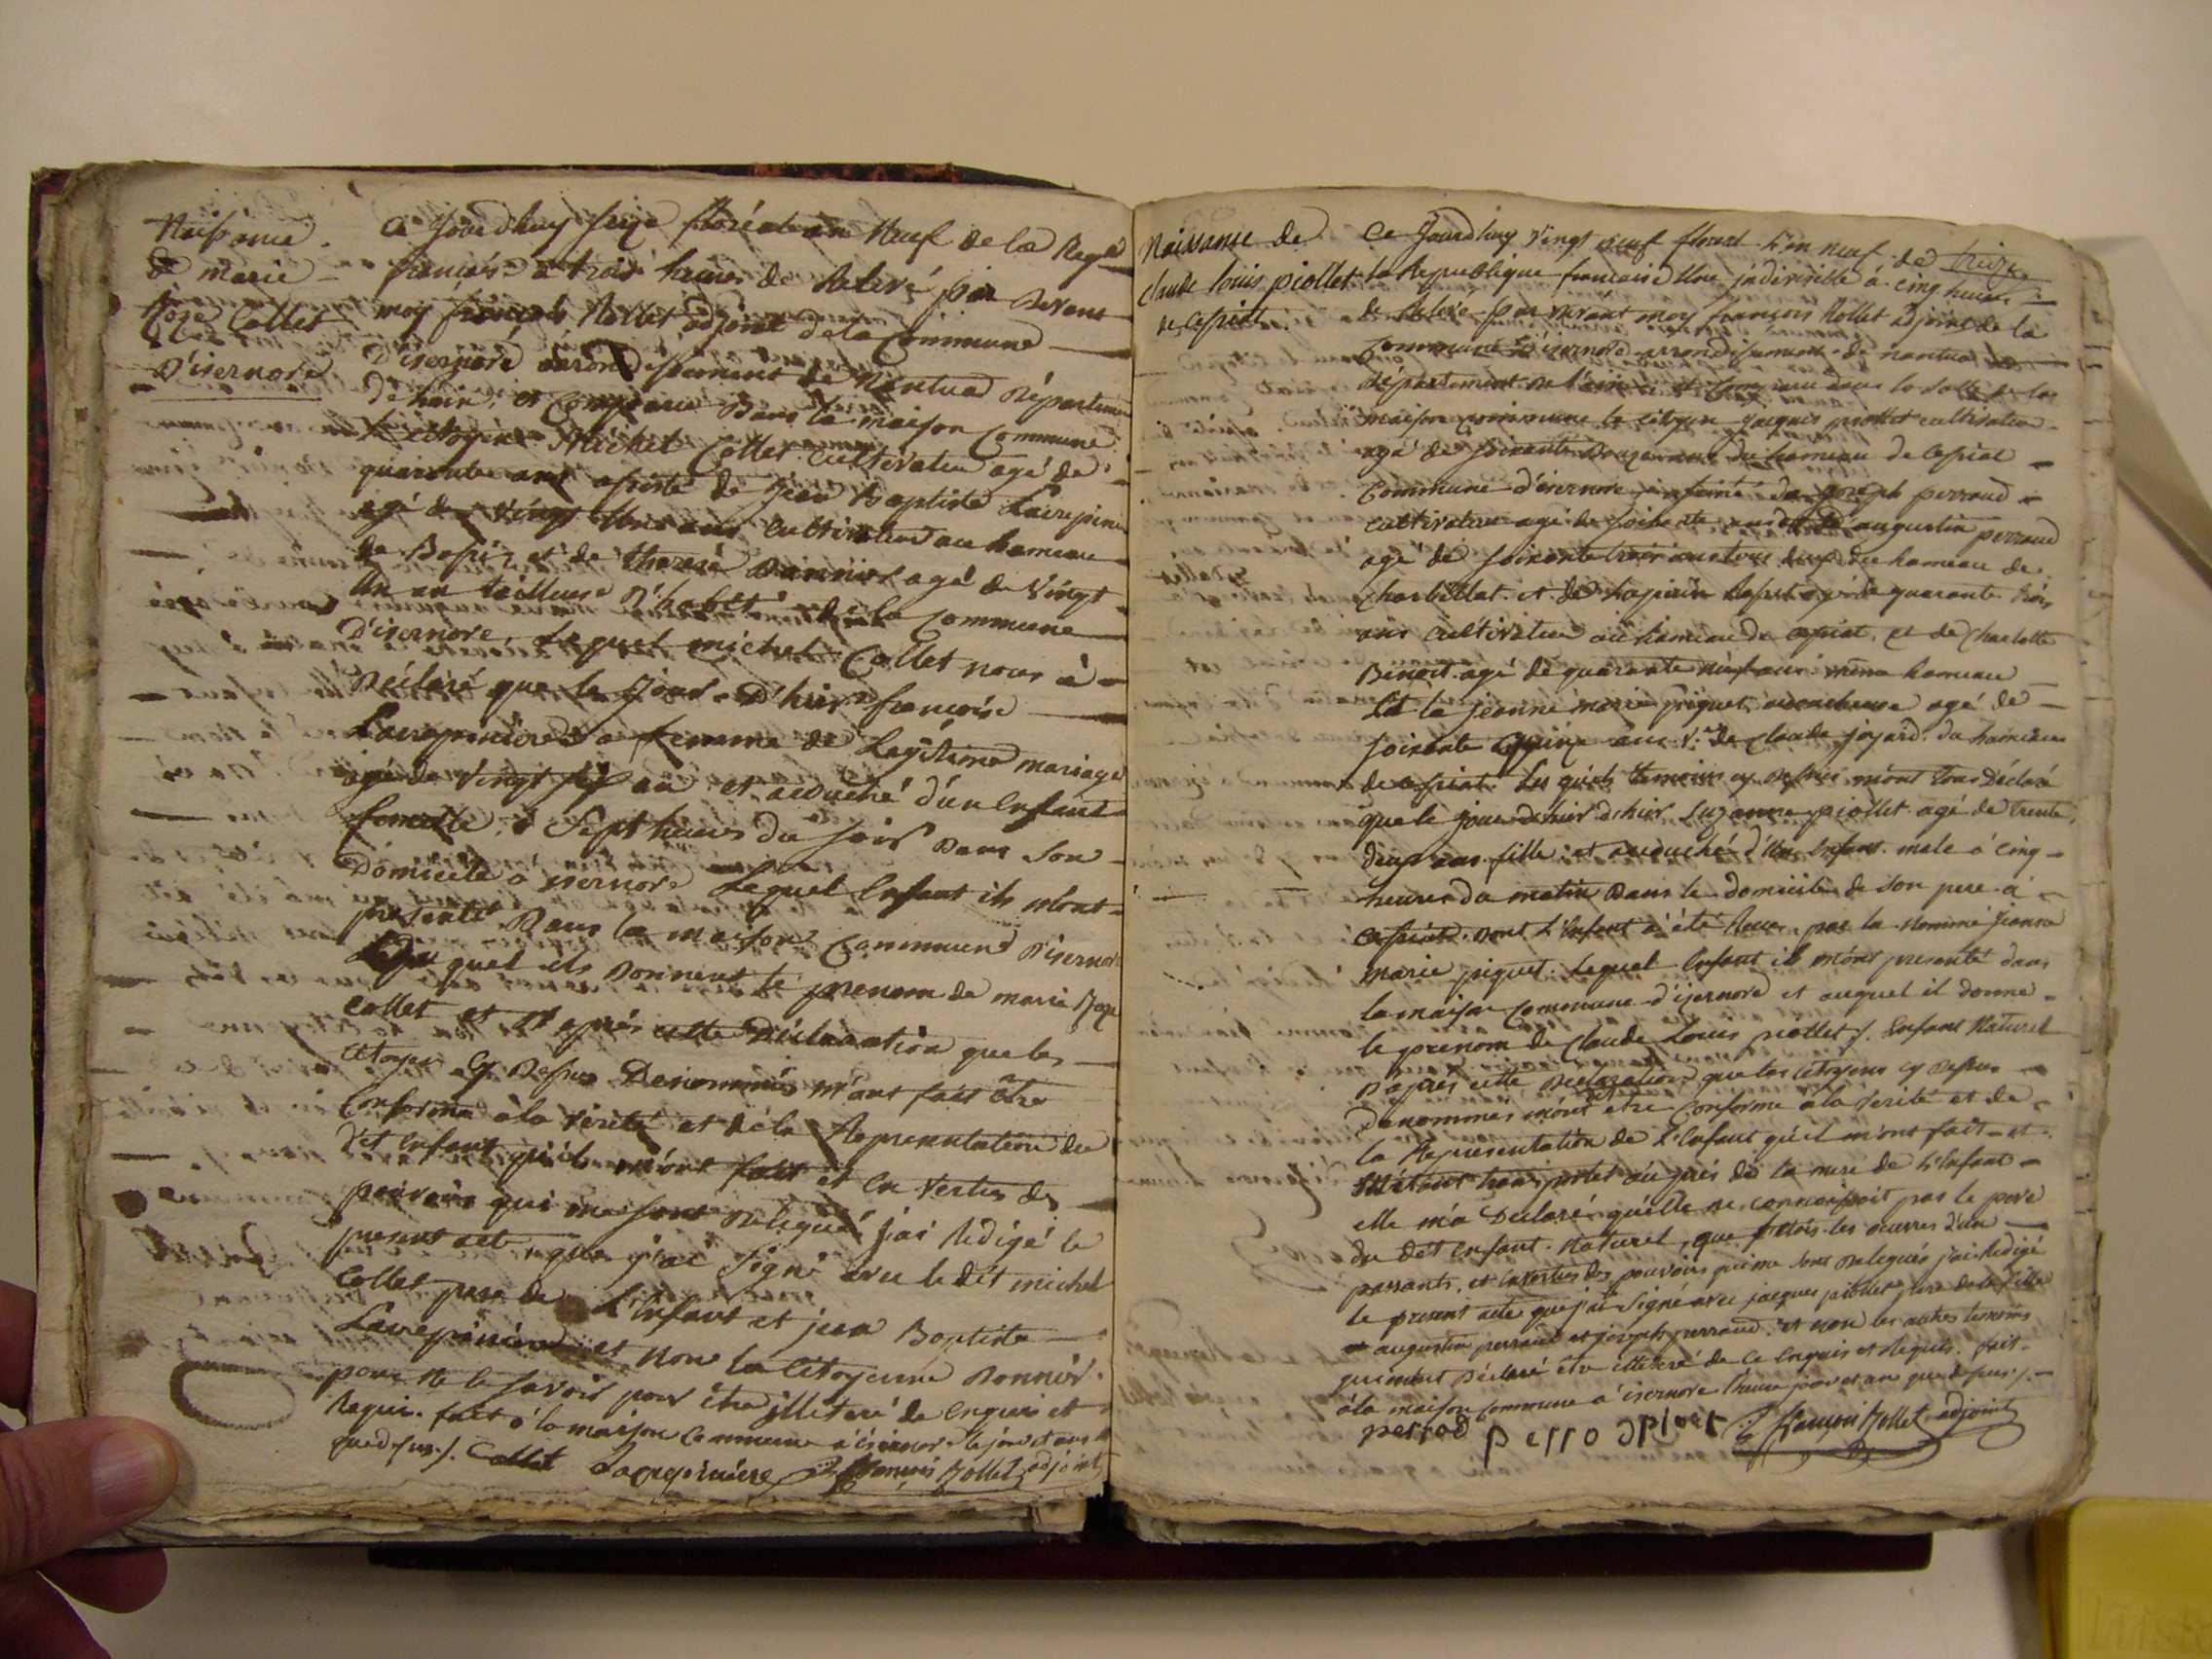 Naissance
de marie
Roze Collet
D'isernore
Ce Jourdhuy seize floréal an Neuf de la Repe
francaise à trois heures de Relevé par devant
moy françois Rollet adjoint de la Commune
D'isernore arrondissement de Nantua Départem
de hain, et Comparu Dans la maison Commune
le citoyen Michel Collet cultivateur agé de
quarante ans assisté de Jean Baptiste
agé de vingt ans cultivateur au hameau
de et de therese agé de Vingt
un an tailleuse d'habit de la Commune
D'isernore, Lequel michel Collet nous à
Déclaré que le Jour D'hier francoise
sa femme de Legitime mariage
agé de Vingt an et acouché d'un Enfant
femelle, à Sept heures du soir Dans Son
Domicile à isernore Lequel Enfant ils m'ont
presenté Dans la maison Commune D'isernore
quel ils Donnent le prenom de marie Roze
Collet et D'aprés cette Déclaration que les
Citoyen Cy Dessus Denommés m'ont fait être
Conforme à la vérité et de la Representation du
dit Enfant qu'ils m'ont fait et En Vertus des
pouvoirs qui me sont Delegué j'ai Redigé le
present acte que j'ai Signé avec le dit michel
Collet pere de L'Enfant et jean Baptiste
et Non la Citoyenne
pour Ne le savoir pour être illiteré de Enquis et
Requis. fait à la maison Commune d'isernore le jour et ans
que dessus ./. Collet françois Rollet adjoint
Naissance de
claude louis piollet
de cessiat
Ce Jourdhuy vingt neuf floreal L'an neuf de
la Republique francaise Une jndivisible à cinq heures
de Relevé par devant moy françois Rollet adjoint de la
Commune D'isernore arrondissement de nantua
département de l'ain et Comparu dans la salle de la
maison commune le citoyen jacques piollet cultivateur
agé de soixante Douze ans du hameau de Cessiat
Commune d'isernore assisté de joseph perraud
cultivateur agé de soixante ans et de augustin perraud
agé de soixante trois ans tous deux du hameau de
Charbillat et de agé de quarante trois
ans cultivateur au hameau de cessiat, et de Charlotte
Benoit agé de quarante neuf ans même hameau
Et la jeanne marie piquet, acoucheuse agé de
soixante quinze ans Ve de claude du hameau
de cessiat. Les quels temoins cy dessus m'ont tous Déclaré
que le jour dhier dhier Suzanne piollet agé de trente
deux ans fille et acouché d'Un Enfant male à cinq
heures du matin Dans le domicile de son pere à
cessiat. Dont L'Enfant à été Reçu par la Nommé jeanne
marie piquet. Lequel Enfant il m'ont presenté dans
la maison Commune d'isernore et auquel il donne
le prenom de Claude Louis piollet ./. Enfant Naturel
D'aprés cette Declaration que les Citoyens cy Dessus
Denommés m'ont fait etre Conforme à la verité et de
la Representation de L'Enfant qu'il m'ont fait et
M'étant transporter auprés de la mere de L'Enfant
elle m'a Declaré qu'elle ne connaissoit pas le pere
du dit Enfant Naturel, que les œuvres d'un
passants, et En vertus des pouvoirs qui me sont Delegués j'ai Redigé
le present acte que j'ai Signé avec jacques piollet pere de la fille
et augustin perraud et joseph perraud, et non les autres temoins
qui m'ont Déclaré être illiteré de Ce Enquis et Requis. fait
à la maison commune d'isernore l'heure jour et an que dessus ./.
perrod perro françois Rollet adjoint